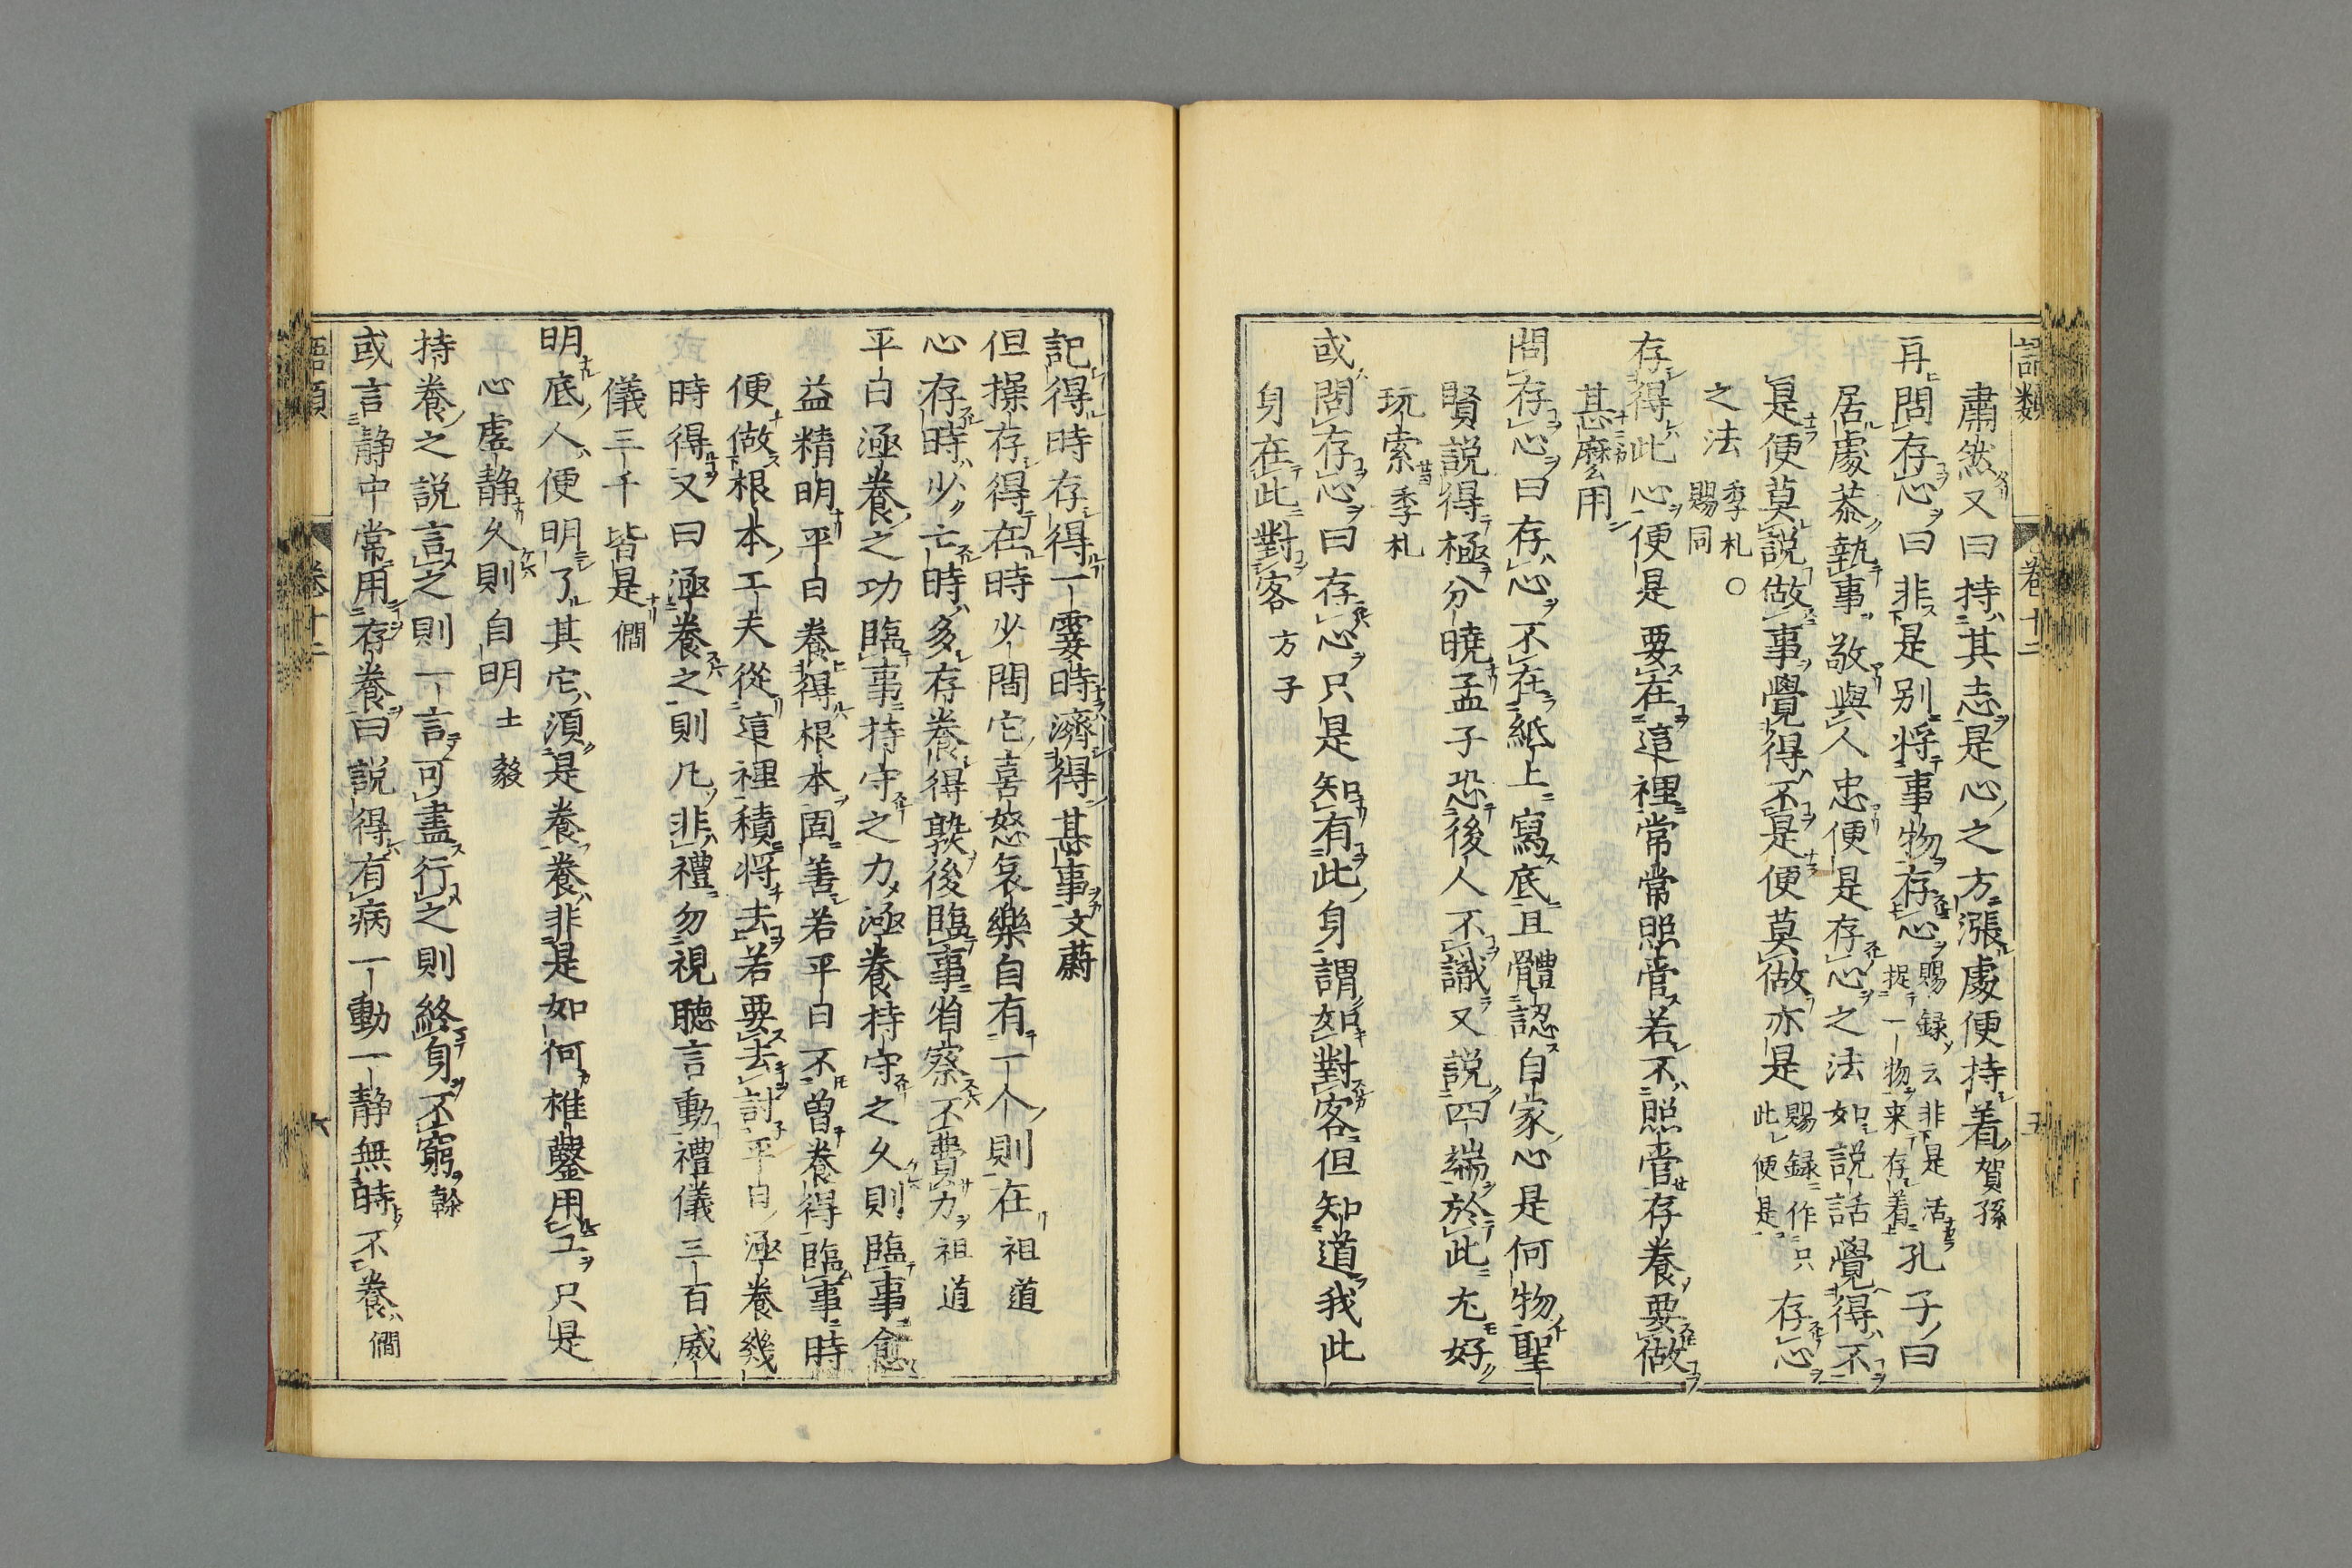 語類
卷十二
五
肅然又曰持其志是心之方漲處便持着賀孫
再問存心曰非是別將事物存心賜録云非是活捉一物来存着孔子曰
居處恭執事敬與人忠便是存心之法如説話覺得不
是便莫説做事覺得不是便莫做亦是賜録作只此便是存心
之法季札賜同○
存得此心便是要在這裡常常照管若不照管存養要做
甚麽用
問存心曰存心不在紙上寫底且體認自家心是何物聖
賢説得極分曉孟子恐後人不識又説四端於此尤好
玩索季札
或問存心曰存心只是知有此身謂如對客但知道我此
身在此對客方子
記得時存得一霎時濟得甚事文蔚
但操存得在時少間它喜怒哀樂自有一个則在祖道
心存時少亡時多存養得熟後臨事省察不費力祖道
平日涵養之功臨事持守之力涵養持守之久則臨事愈
益精明平日養得根本固善若平日不曾養得臨事時
便做根本工夫從這裡積将去若要去討平日涵養幾
時得又曰涵養之則凡非禮勿視聽言動禮儀三百威
儀三千皆是僩
明底人便明了其它須是養養非是如何椎鑿用工只是
心虚静久則自明士毅
持養之説言之則一言可盡行之則終身不窮榦
或言静中常用存養曰説得有病一動一静無時不養僩
語類
卷十二
六